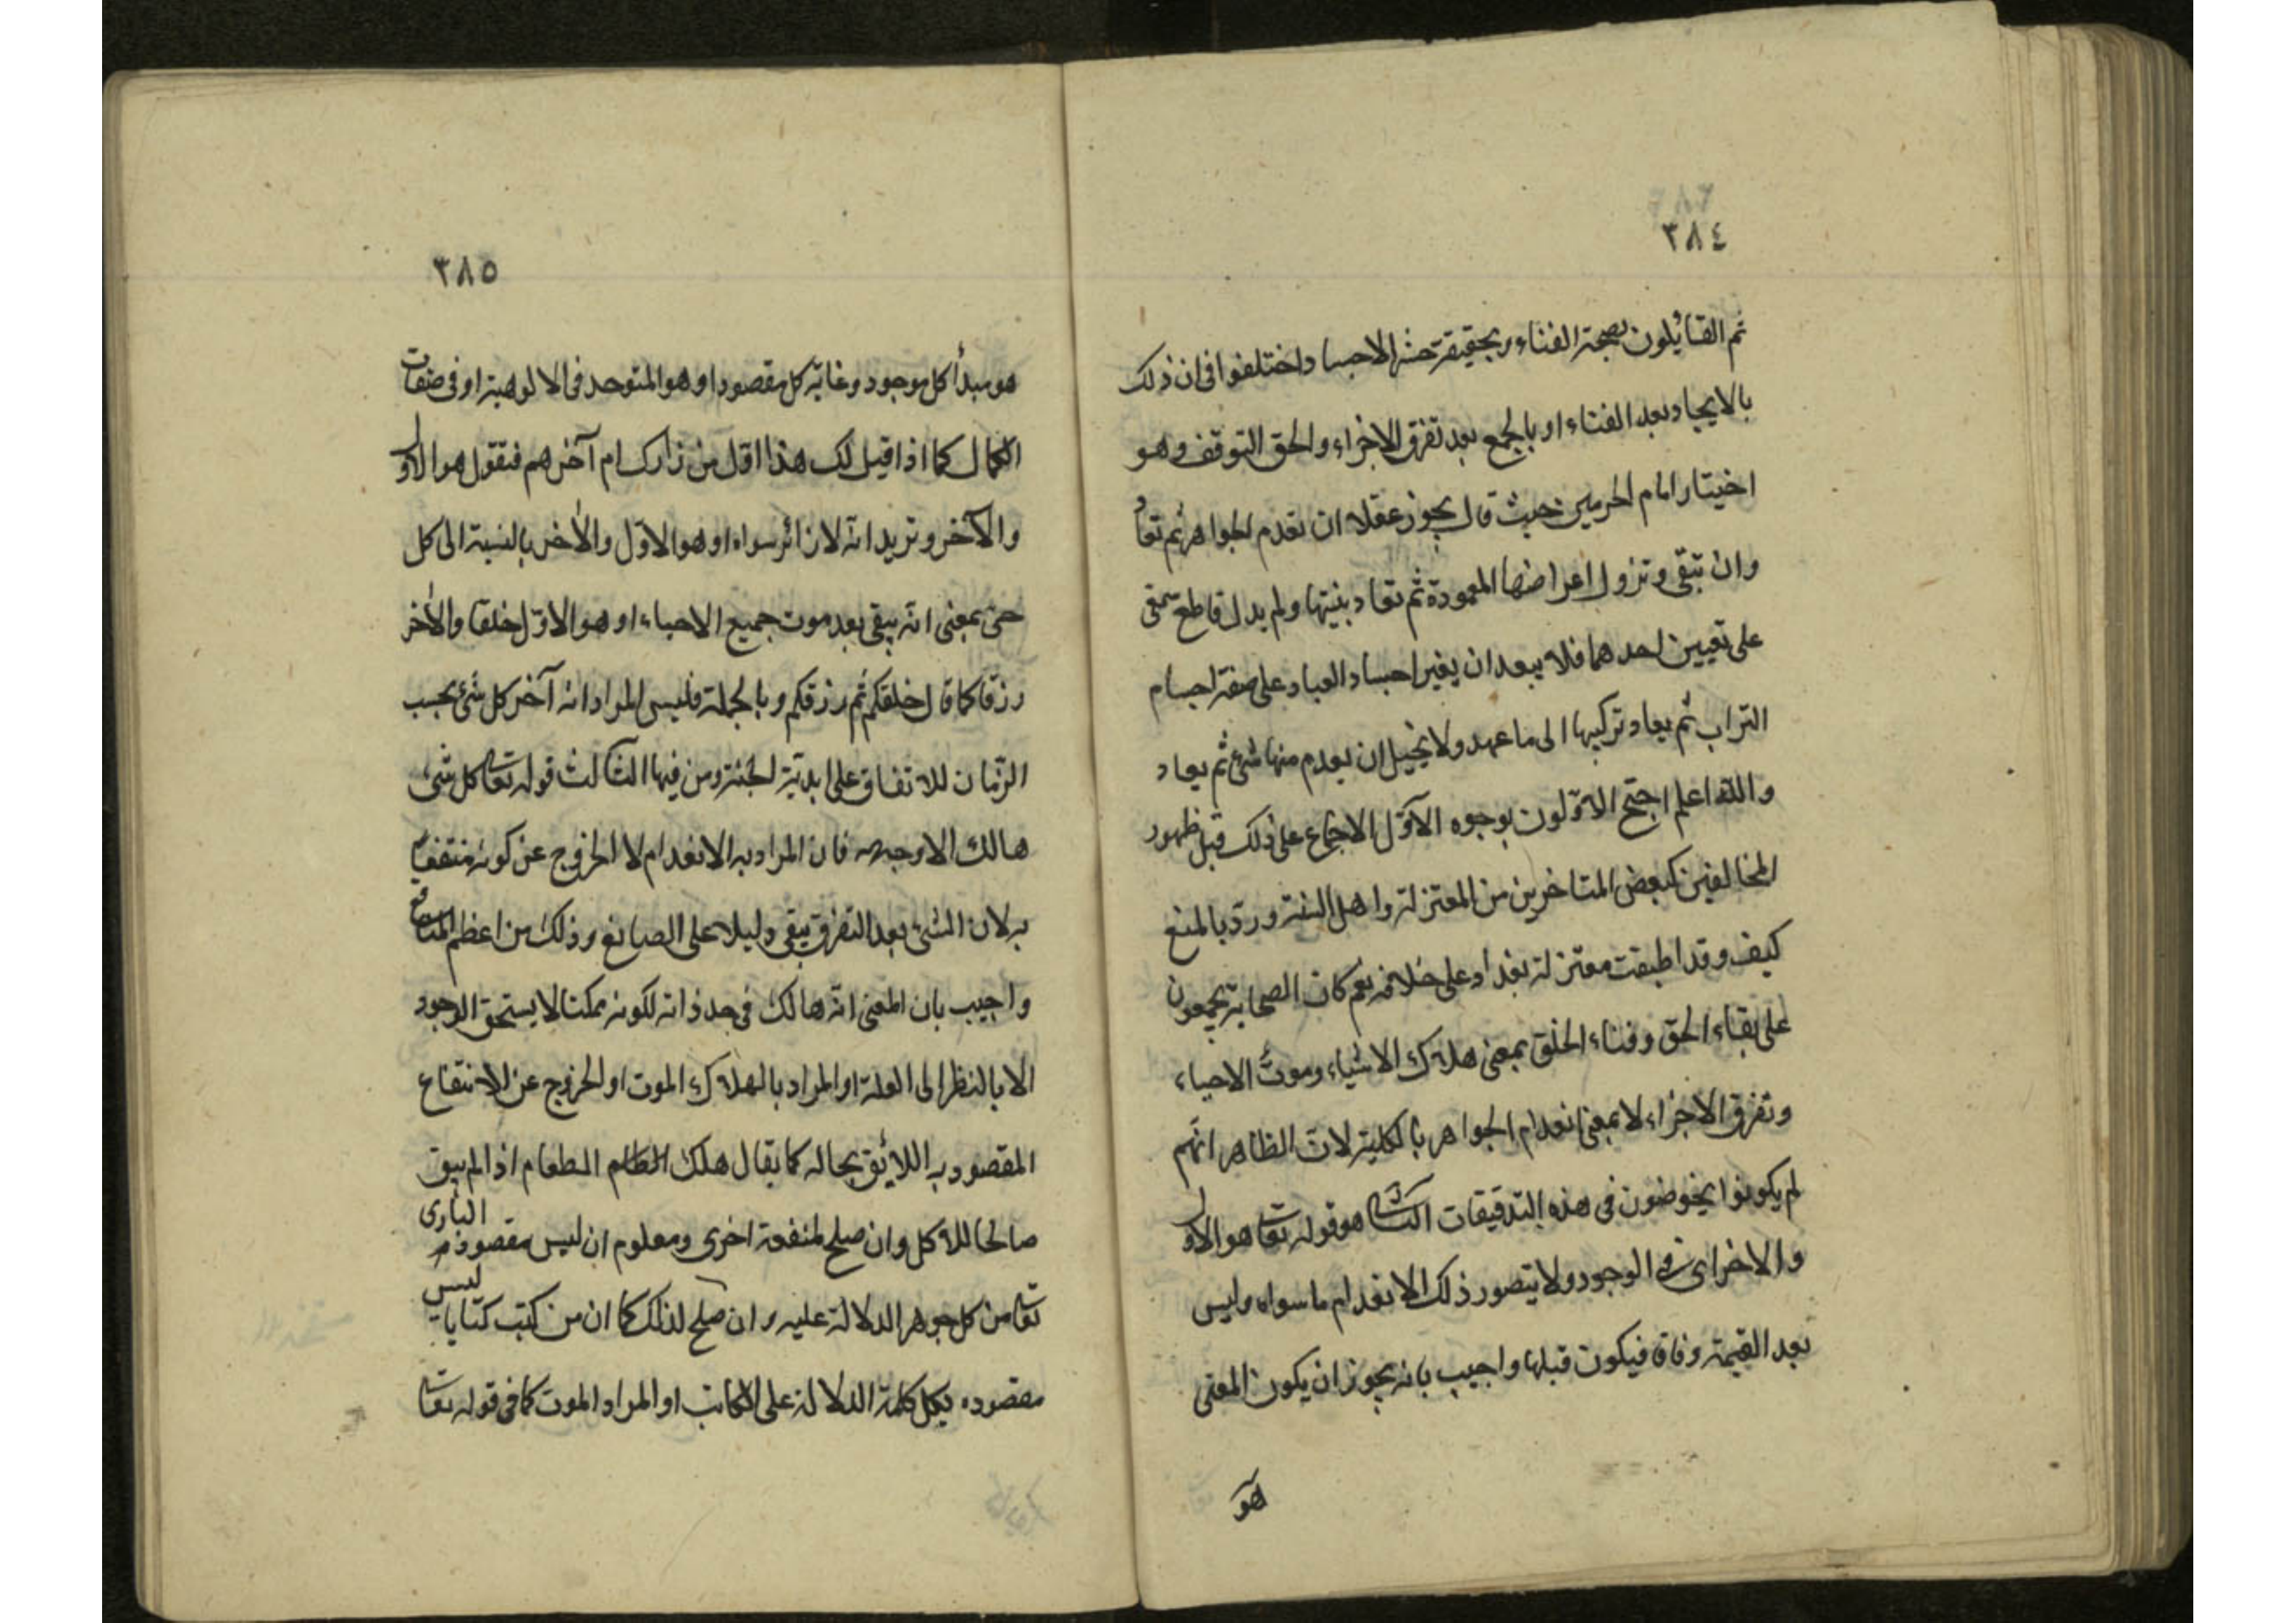 ٣٨٤
ثم القائلون بصحة الفناء وبحقيقة حشر الاجساد اختلفوا فى ان ذلك
بالايجاد بعد الفناء او بالجمع بعد تفرق الاجزاء والحق التوقف وهو
اختيار امام الحرمين حيث قال يجوز عقلا ان تعدم الجواهر ثم تعاد
وان تبقى وتزول اعراضها المعهودة ثم تعاد بنيتها ولم يدل قاطع سمعى
على تعيين احدهما فلا يبعد ان يغير اجساد العباد على صفة اجسام
التراب ثم يعاد تركيبها الى ما عهد ولا يحيل ان يعدم منها شئ ثم يعاد
والله اعلم احتج الاولون بوجوه الآول الاجماع على ذلك قبل ظهور
المخالفين كبعض المتاخرين من المعتزلة واهل السنة ورد بالمنع
كيف وقد اطبقت معتزلة بغداد على خلافه نعم كان الصحابة يجمعون
على بقاء الحق وفناء الخلق بمعنى هلاك الاشياء وموت الاحياء
وتفرق الاجزاء لا بمعنى انعدام الجواهر بالكلية لان الظاهر انهم
لم يكونوا يخوضون فى هذه التدقيقات الثانى هو قوله تعا هو الاول
والاخر اى فى الوجود ولا يتصور ذلك الا بانعدام ما سواه وليس
بعد القيمة وفاقا فيكون قبلها واجيب بانه يجوز ان يكون المعنى
هو
٣٨٥
هو مبدأ كل موجود وغاية كل مقصود او هو المتوحد فى الالوهية او فى صفات
الكمال كما اذا قيل لك هذا اول من زارك ام آخرهم فتقول هو الاول
والآخر وتريد انه لا زائر سواه او هو الاول والأخر بالنسبة الى كل
حى بمعنى انه يبقى بعد موت جميع الاحياء او هو الاول خلقا والأخر
رزقا كما قال خلقكم ثم رزقكم وبالجملة فليس المراد انه آخر كل شئ بحسب
الزمان للاتفاق على ابدية الجنة ومن فيها الثالث قوله تعا كل شئ
هالك الا وجهه فان المراد به الانعدام لا الخروج عن كونه منتفعا
به لان الشئ بعد التفرق يبقى دليلا على الصانع وذلك من اعظم المنافع
واجيب بان المعنى انه هالك فى حد ذاته لكونه ممكنا لا يستحق الوجود
الا بالنظر الى العلة او المراد بالهلاك الموت او الخروج عن الانتفاع
المقصود به اللائق بحاله كما يقال هلك الطعام اذا لم يبق
صالحا للاكل وان صلح لمنفعة اخرى ومعلوم ان ليس مقصود البارى
تعا من كل جوهر الدلالة عليه وان صلح لذلك كما ان من كتب كتابا ليس
مقصوده بكل كلمة الدلالة على الكاتب او المراد الموت كما فى قوله تعا